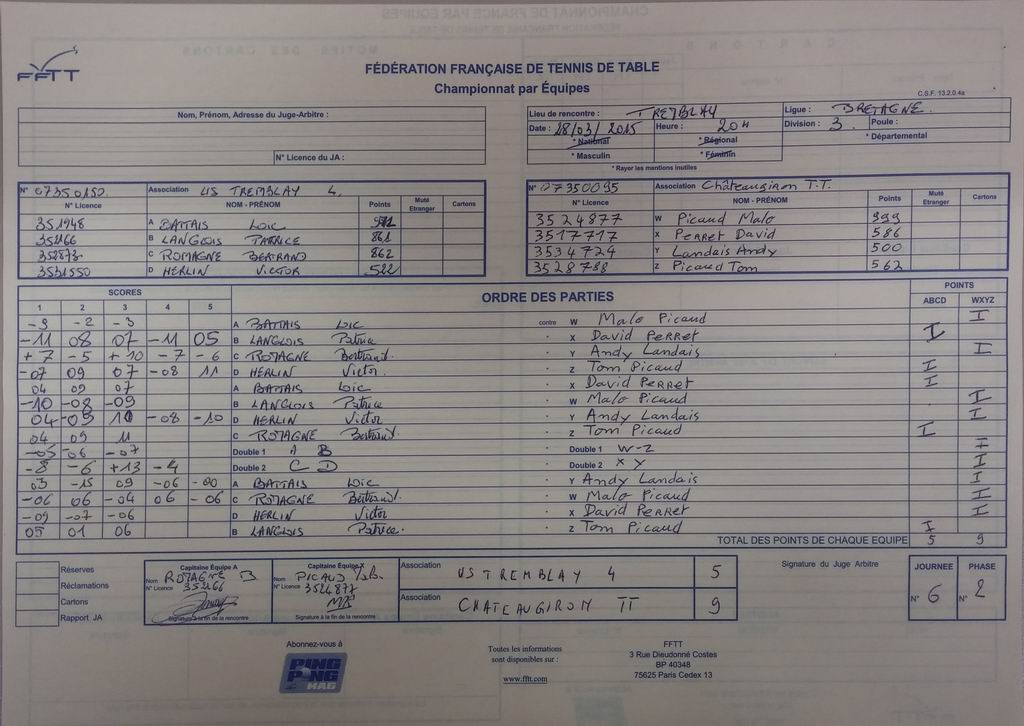 FFTT
FÉDÉRATION FRANÇAISE DE TENNIS DE TABLE
Championnat par Équipes
C.S.F. 13.2.0.4a
Nom, Prénom, Adresse du Juge-Arbitre :
N° Licence du JA :
Lieu de rencontre : TREMBLAY Ligue : BRETAGNE.
Date : 28/03/2015 Heure : 20H Division : 3 Poule :
* National * Régional * Départemental
* Masculin * Féminin
* Rayer les mentions inutiles
N° 07350150. Association US TREMBLAY 4.
N° Licence NOM - PRÉNOM Points Muté Etranger Cartons
351948 A BATTAIS Loïc
B LANGLOIS PATRICE 861
C ROMAGNE BERTRAND 862
3531550 D HERLIN VICTOR 522
N° 07350095 Association Châteaugiron T.T.
N° Licence NOM - PRÉNOM Points Muté Etranger Cartons
3524877 W Picaud Malo 999
3517717 X Perret David 586
3534724 Y Landais Andy 500
3528788 Z Picaud Tom 562
SCORES ORDRE DES PARTIES POINTS
1 2 3 4 5 ABCD WXYZ
-9 -2 -3 A BATTAIS Loic contre W Malo Picaud I
-11 08 07 -11 05 B LANGLOIS Patrice X David Perret I
+7 -5 +10 -7 -6 C ROMAGNE Bertrand. Y Andy Landais I
-07 09 07 -08 11 D HERLIN Victor. Z Tom Picaud I
04 09 07 A BATTAIS Loic X David Perret I
-10 -08 -09 B LANGLOIS Patrice W Malo Picaud I
04 -09 -08 -10 D HERLIN Victor Y Andy Landais I
04 09 11 C ROMAGNE Bertrand. Z Tom Picaud I
-05 -06 -07 Double 1 A B Double 1 W-Z I
-8 -6 +13 -4 Double 2 C D Double 2 X Y I
03 -15 09 -06 -00 A BATTAIS Loic Y Andy Landais I
-06 06 -04 06 -06 C ROMAGNE Bertrand. W Malo Picaud I
-09 -07 -06 D HERLIN Victor X David Perret I
05 01 06 B LANGLOIS Patrice. Z Tom Picaud I
TOTAL DES POINTS DE CHAQUE EQUIPE 5 9
Réserves
Réclamations
Cartons
Rapport JA
Capitaine Équipe A
Nom ROMAGNE B
N° Licence 352166
Signature à la fin de la rencontre
Capitaine Équipe X
Nom PICAUD
N° Licence 3524877
Signature à la fin de la rencontre
Association US TREMBLAY 4 5
Association CHATEAUGIRON TT 9
Signature du Juge Arbitre
JOURNEE PHASE
N° 6 N° 2
Abonnez-vous à
PING PONG MAG
Toutes les informations
sont disponibles sur :
www.fftt.com
FFTT
3 Rue Dieudonné Costes
BP 40348
75625 Paris Cedex 13